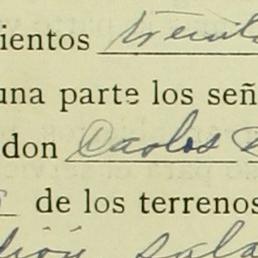 ientos treinta
una parte los señ
don Carlos
de los terrenos